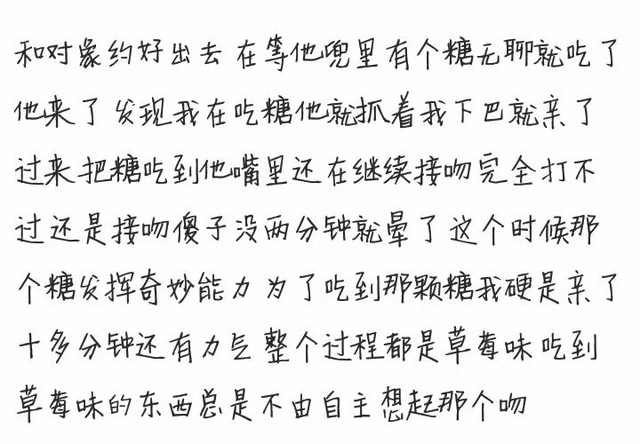 和对象约好出去 在等他兜里有个糖无聊就吃了
他来了 发现我在吃糖他就抓着我下巴就亲了
过来把糖吃到他嘴里还在继续接吻完全打不
过还是接吻傻子没两分钟就晕了 这个时候那
个糖发挥奇妙能力 为了吃到那颗糖我硬是亲了
十多分钟还有力气 整个过程都是草莓味 吃到
草莓味的东西总是不由自主想起那个吻